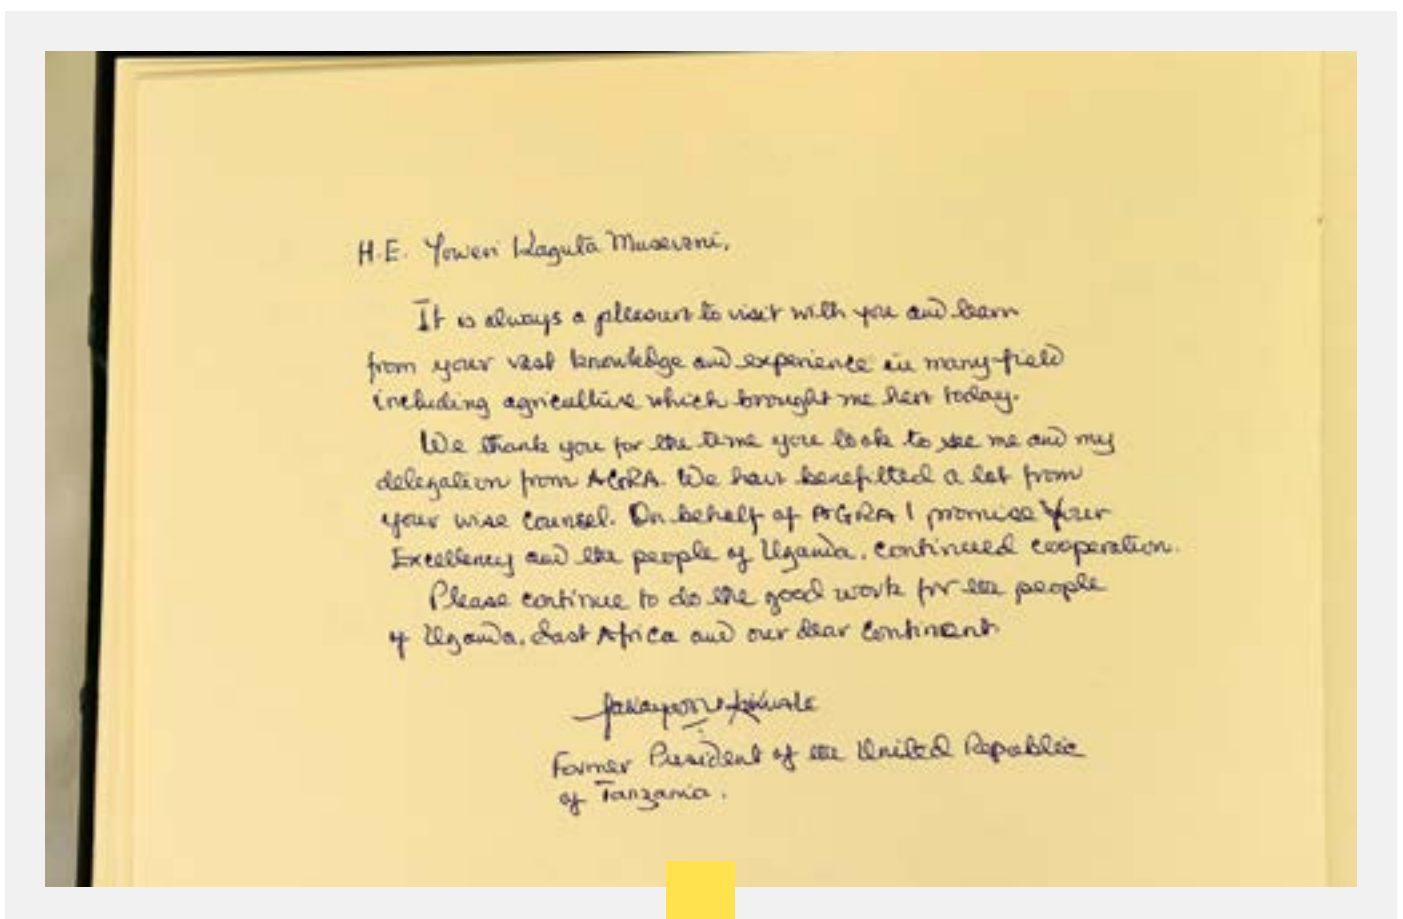 H.E. Yoweri Kaguta Museveni,
It is always a pleasure to visit with you and learn
from your vast knowledge and experience in many field
including agriculture which brought me here today.
We thank you for the time you took to see me and my
delegation from AGRA. We have benefitted a lot from
your wise counsel. On behalf of AGRA I promise Your
Excellency and the people of Uganda, continued cooperation.
Please continue to do the good work for the people
of Uganda, East Africa and our dear continent
Jakaya M Kikwete
Former President of the United Republic
of Tanzania.